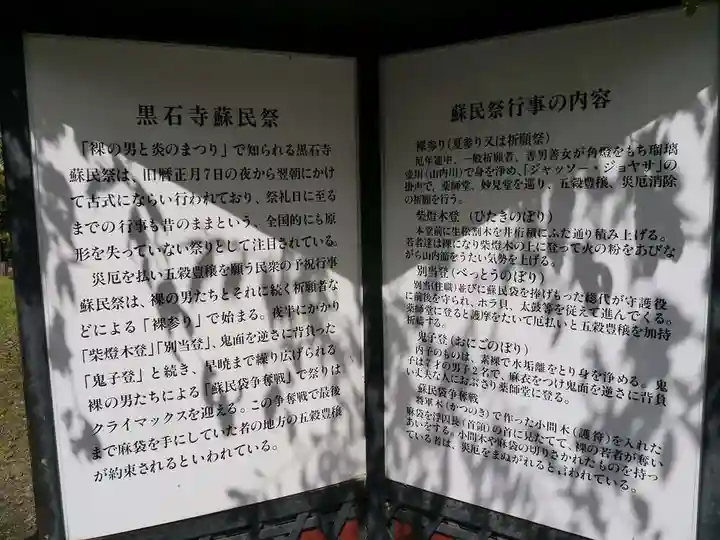 黒石寺蘇民祭
「裸の男と炎のまつり」で知られる黒石寺
蘇民祭は、旧暦正月7日の夜から翌朝にかけ
て古式にならい行われており、祭礼日に至る
までの行事も昔のままという、全国的にも原
形を失っていない祭りとして注目されている。
災厄を払い五穀豊穣を願う民衆の予祝行事
蘇民祭は、裸の男たちとそれに続く祈願者な
どによる「裸参り」で始まる。夜半にかかり
「柴燈木登」「別当登」、鬼面を逆さに背負った
「鬼子登」と続き、早暁まで繰り広げられる
裸の男たちによる「蘇民袋争奪戦」で祭りは
クライマックスを迎える。この争奪戦で最後
まで麻袋を手にしていた者の地方の五穀豊穣
が約束されるといわれている。
蘇民祭行事の内容
裸参り(夏参り又は祈願祭)
厄年連中、一般祈願者、善男善女が角燈をもち瑠璃
壷川(山内川)で身を浄め、「ジャッソー・ジョヤサ」の
掛声で、薬師堂、妙見堂を巡り、五穀豊穣、災厄消除
の祈願を行う。
柴燈木登(ひたきのぼり)
本堂前に生松割木を井桁積にふた通り積み上げる。
若者達は裸になり柴燈木の上に登って火の粉をあびな
がら山内節をうたい気勢を上げる。
別当登(べっとうのぼり)
別当(住職)並びに蘇民袋を捧げもった総代が守護役
に前後を守られ、ホラ貝、太鼓等を従えて進んでくる。
薬師堂に登ると護摩をたいて厄払いと五穀豊穣を加持
祈祷する。
鬼子登(おにごのぼり)
内子のものは、素裸で水垢離をとり身を浄める。鬼
子は7才の男子2名で、麻衣をつけ鬼面を逆さに背負
い丈夫な人におぶさり薬師堂に登る。
蘇民袋争奪戦
将軍木(かつのき)で作った小間木(護符)を入れた
麻袋を浮囚長(首領)の首に見たてて、裸の若者が奪い
あいをする。小間木や麻袋の切りさかれたものを持っ
ている者は、災厄をまぬがれると言われている。